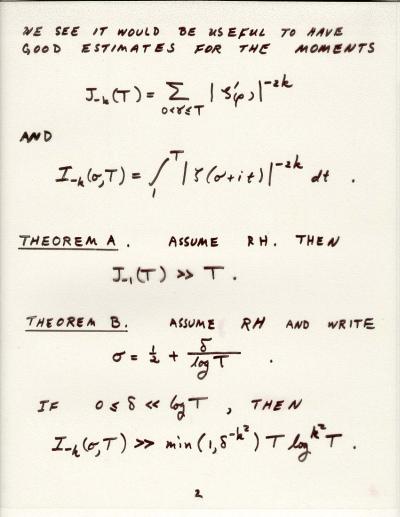 WE SEE IT WOULD BE USEFUL TO HAVE
GOOD ESTIMATES FOR THE MOMENTS
J₋ₖ(T) = ∑_{0<γ≤T} |ζ'(ρ)|^{-2k}
AND
I₋ₖ(σ,T) = ∫₁^T |ζ(σ+it)|^{-2k} dt .
THEOREM A. ASSUME RH. THEN
J₋₁(T) >> T .
THEOREM B. ASSUME RH AND WRITE
σ = 1/2 + δ/log T .
IF 0 ≤ δ << log T , THEN
I₋ₖ(σ,T) >> min(1, δ^{-k²}) T log^{k²} T .
2